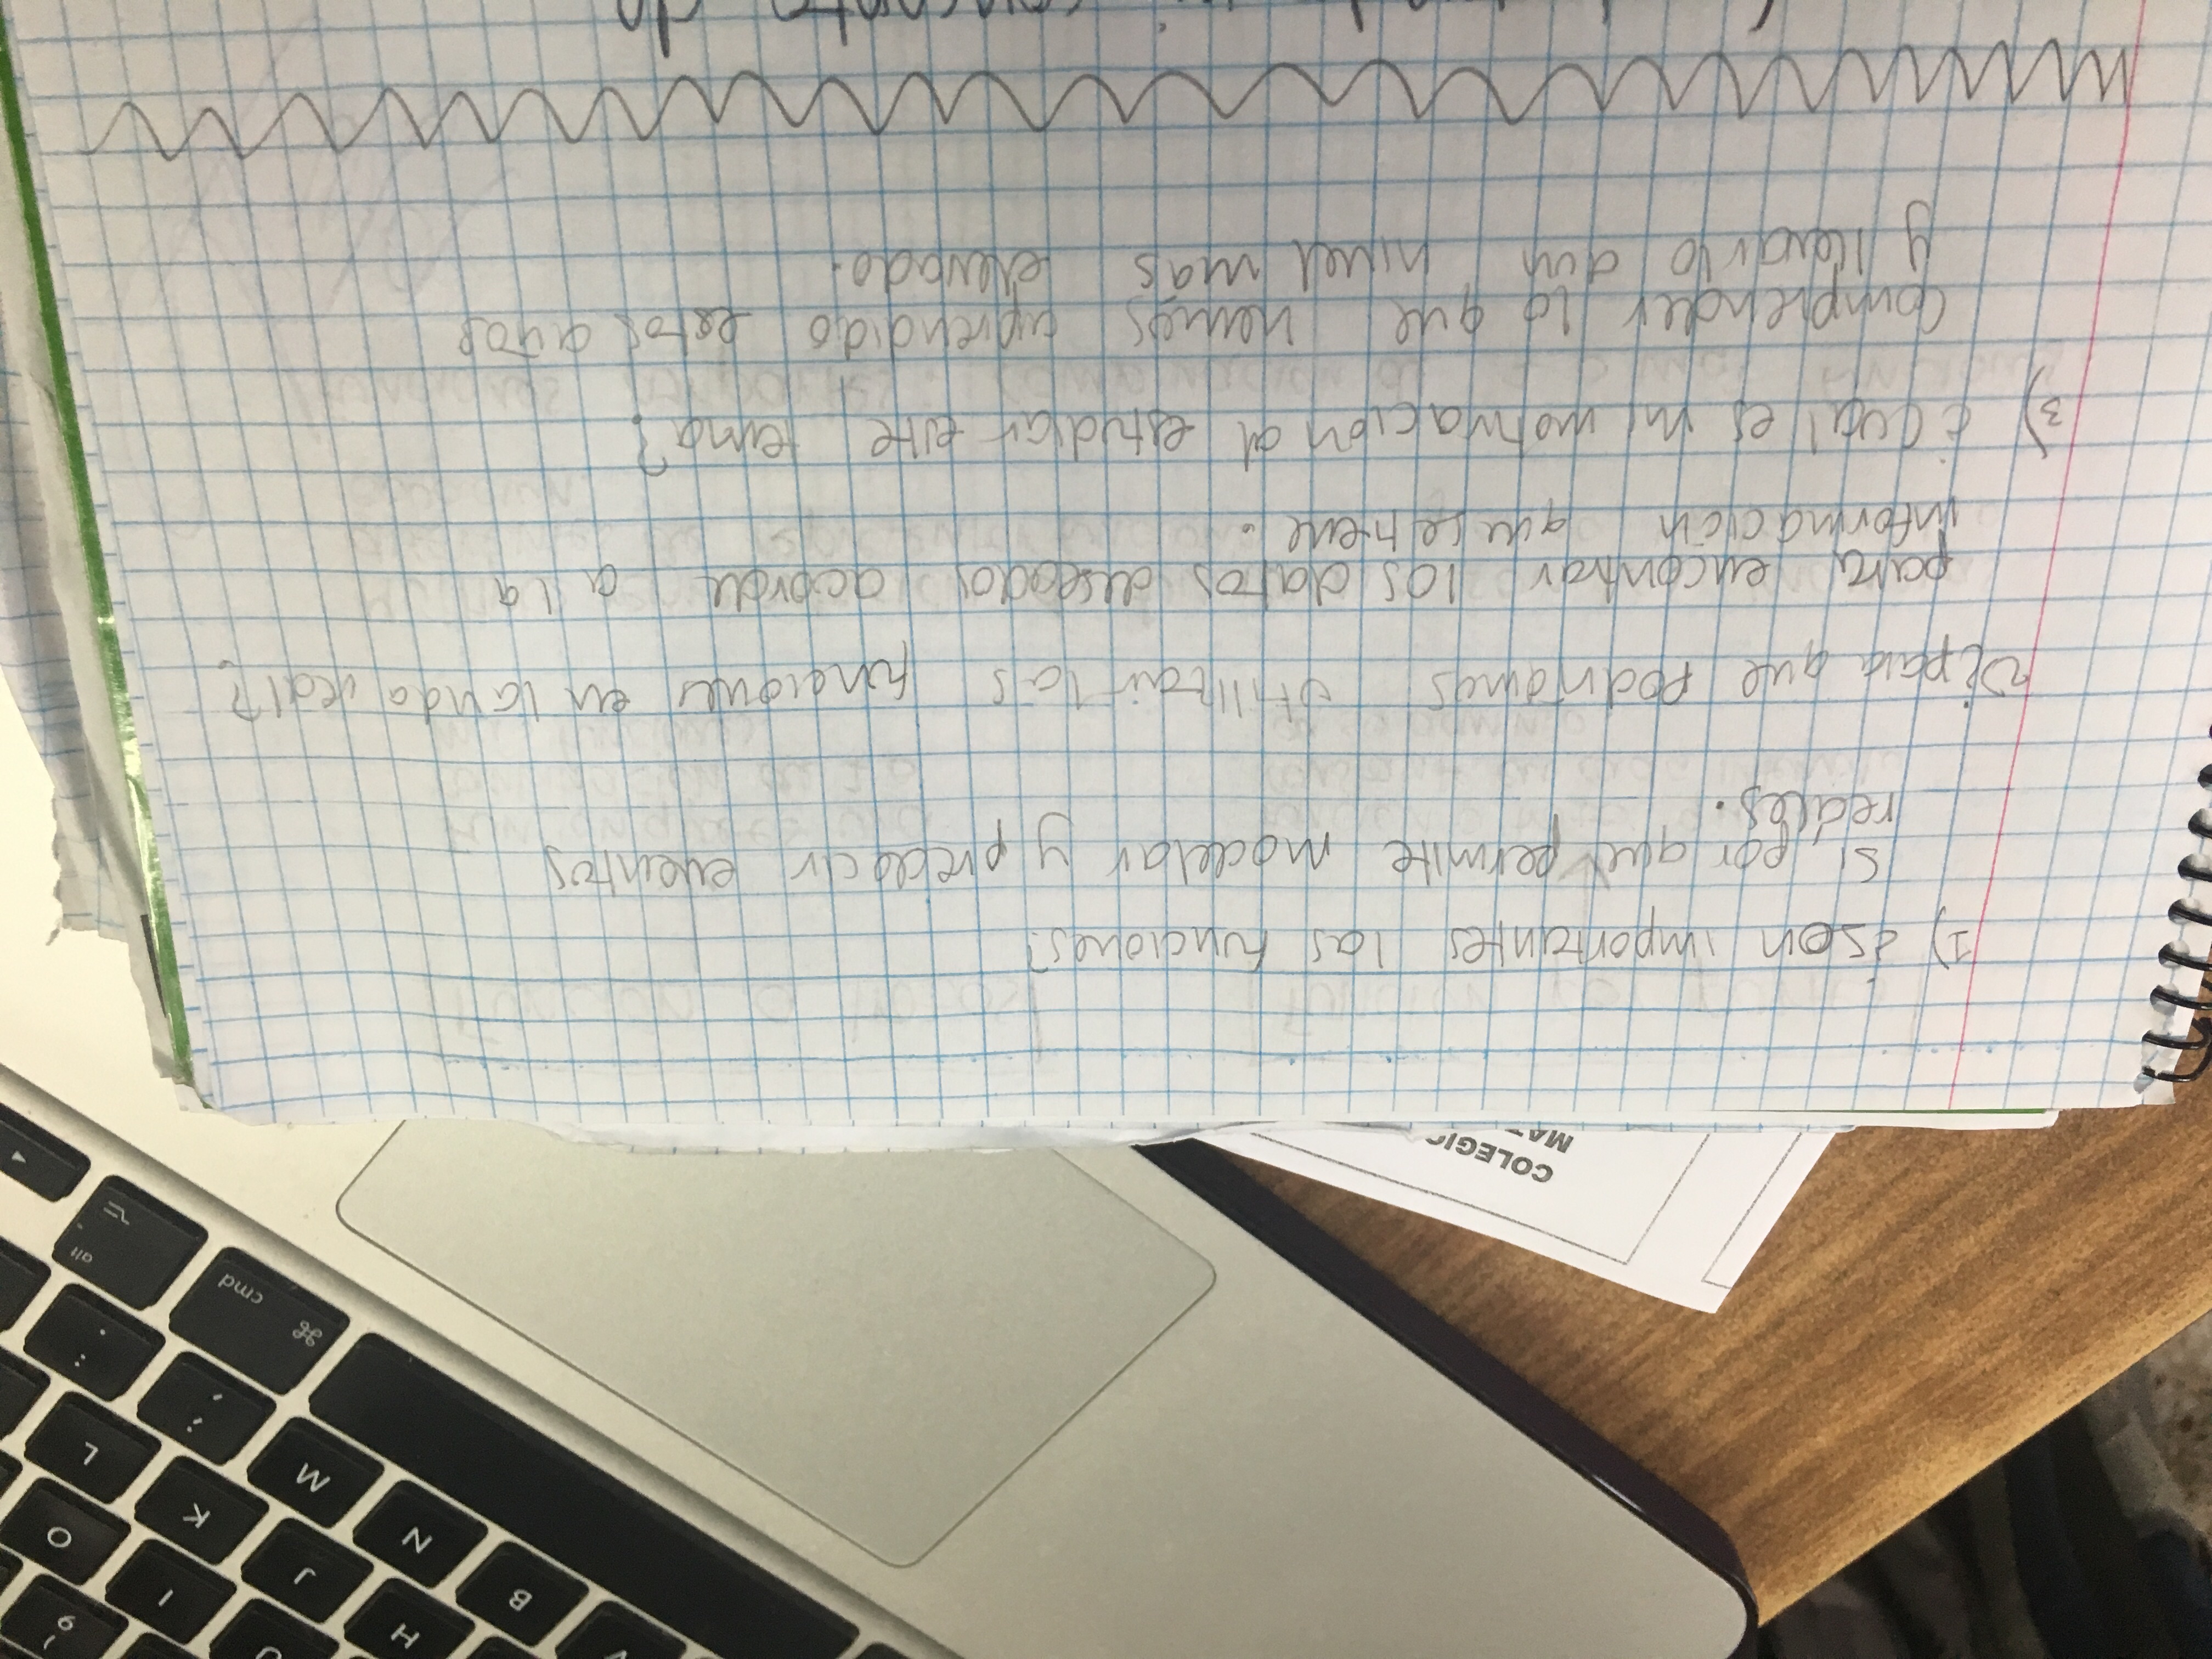 1) ¿son importantes las funciones?
Si por que permite modelar y predecir eventos
reales.
2) ¿para que podriamos utilizar las funciones en la vida real?
para encontrar los datos deseados acorde a la
información que se tiene.
3) ¿cual es mi motivacion al estudiar este tema?
Comprender lo que hemos aprendido estos años
y llevarlo aun nivel mas elevado.
COLEGIO
MAT
alt
cmd
L
K
M
O
I
J
N
B
H
9